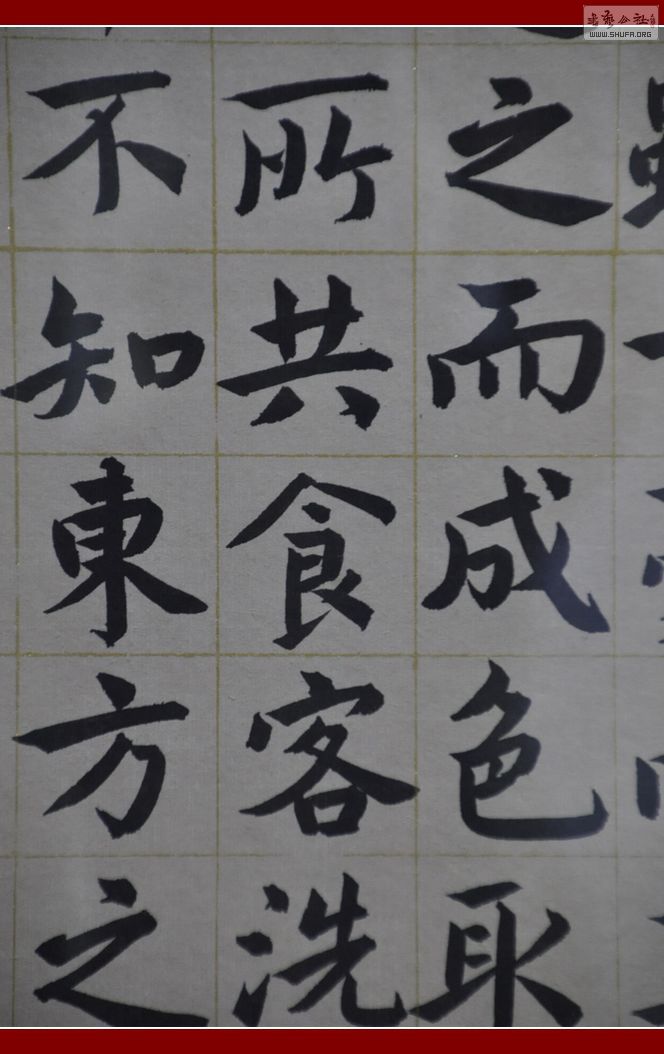 之而成色取
所共食客洗
不知東方之
WWW.SHUFA.ORG